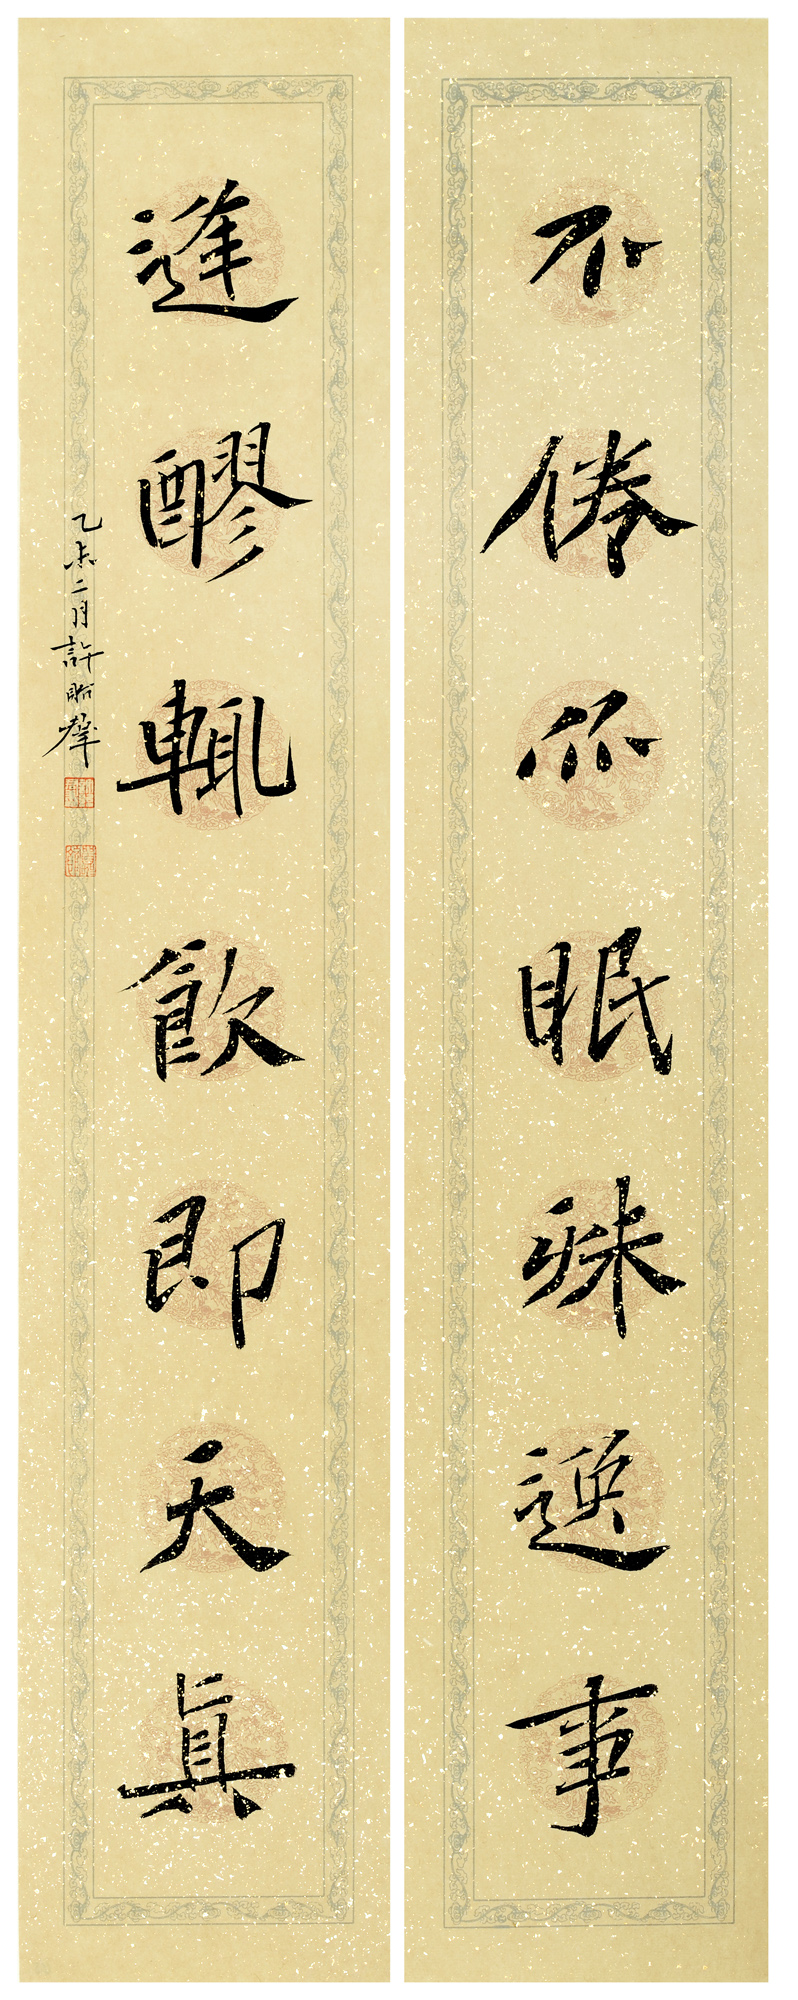 不倦不眠殊逸事
逢醪輒飲即天真
乙未二月許